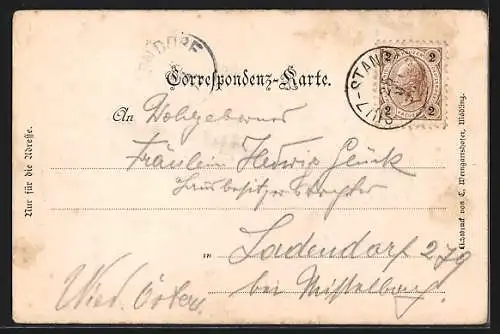 NDORF
Correspondenz-Karte.
2 2
STAN
2 2
An Wohlgeborner
Fräulein Hedwig Glück
Hausbesitzerstochter
in Ladendorf 279
bei Mistelbach
Nied. Österr.
Nur für die Adresse.
Lichtdruck von C. Weingartshofer, Mödling.